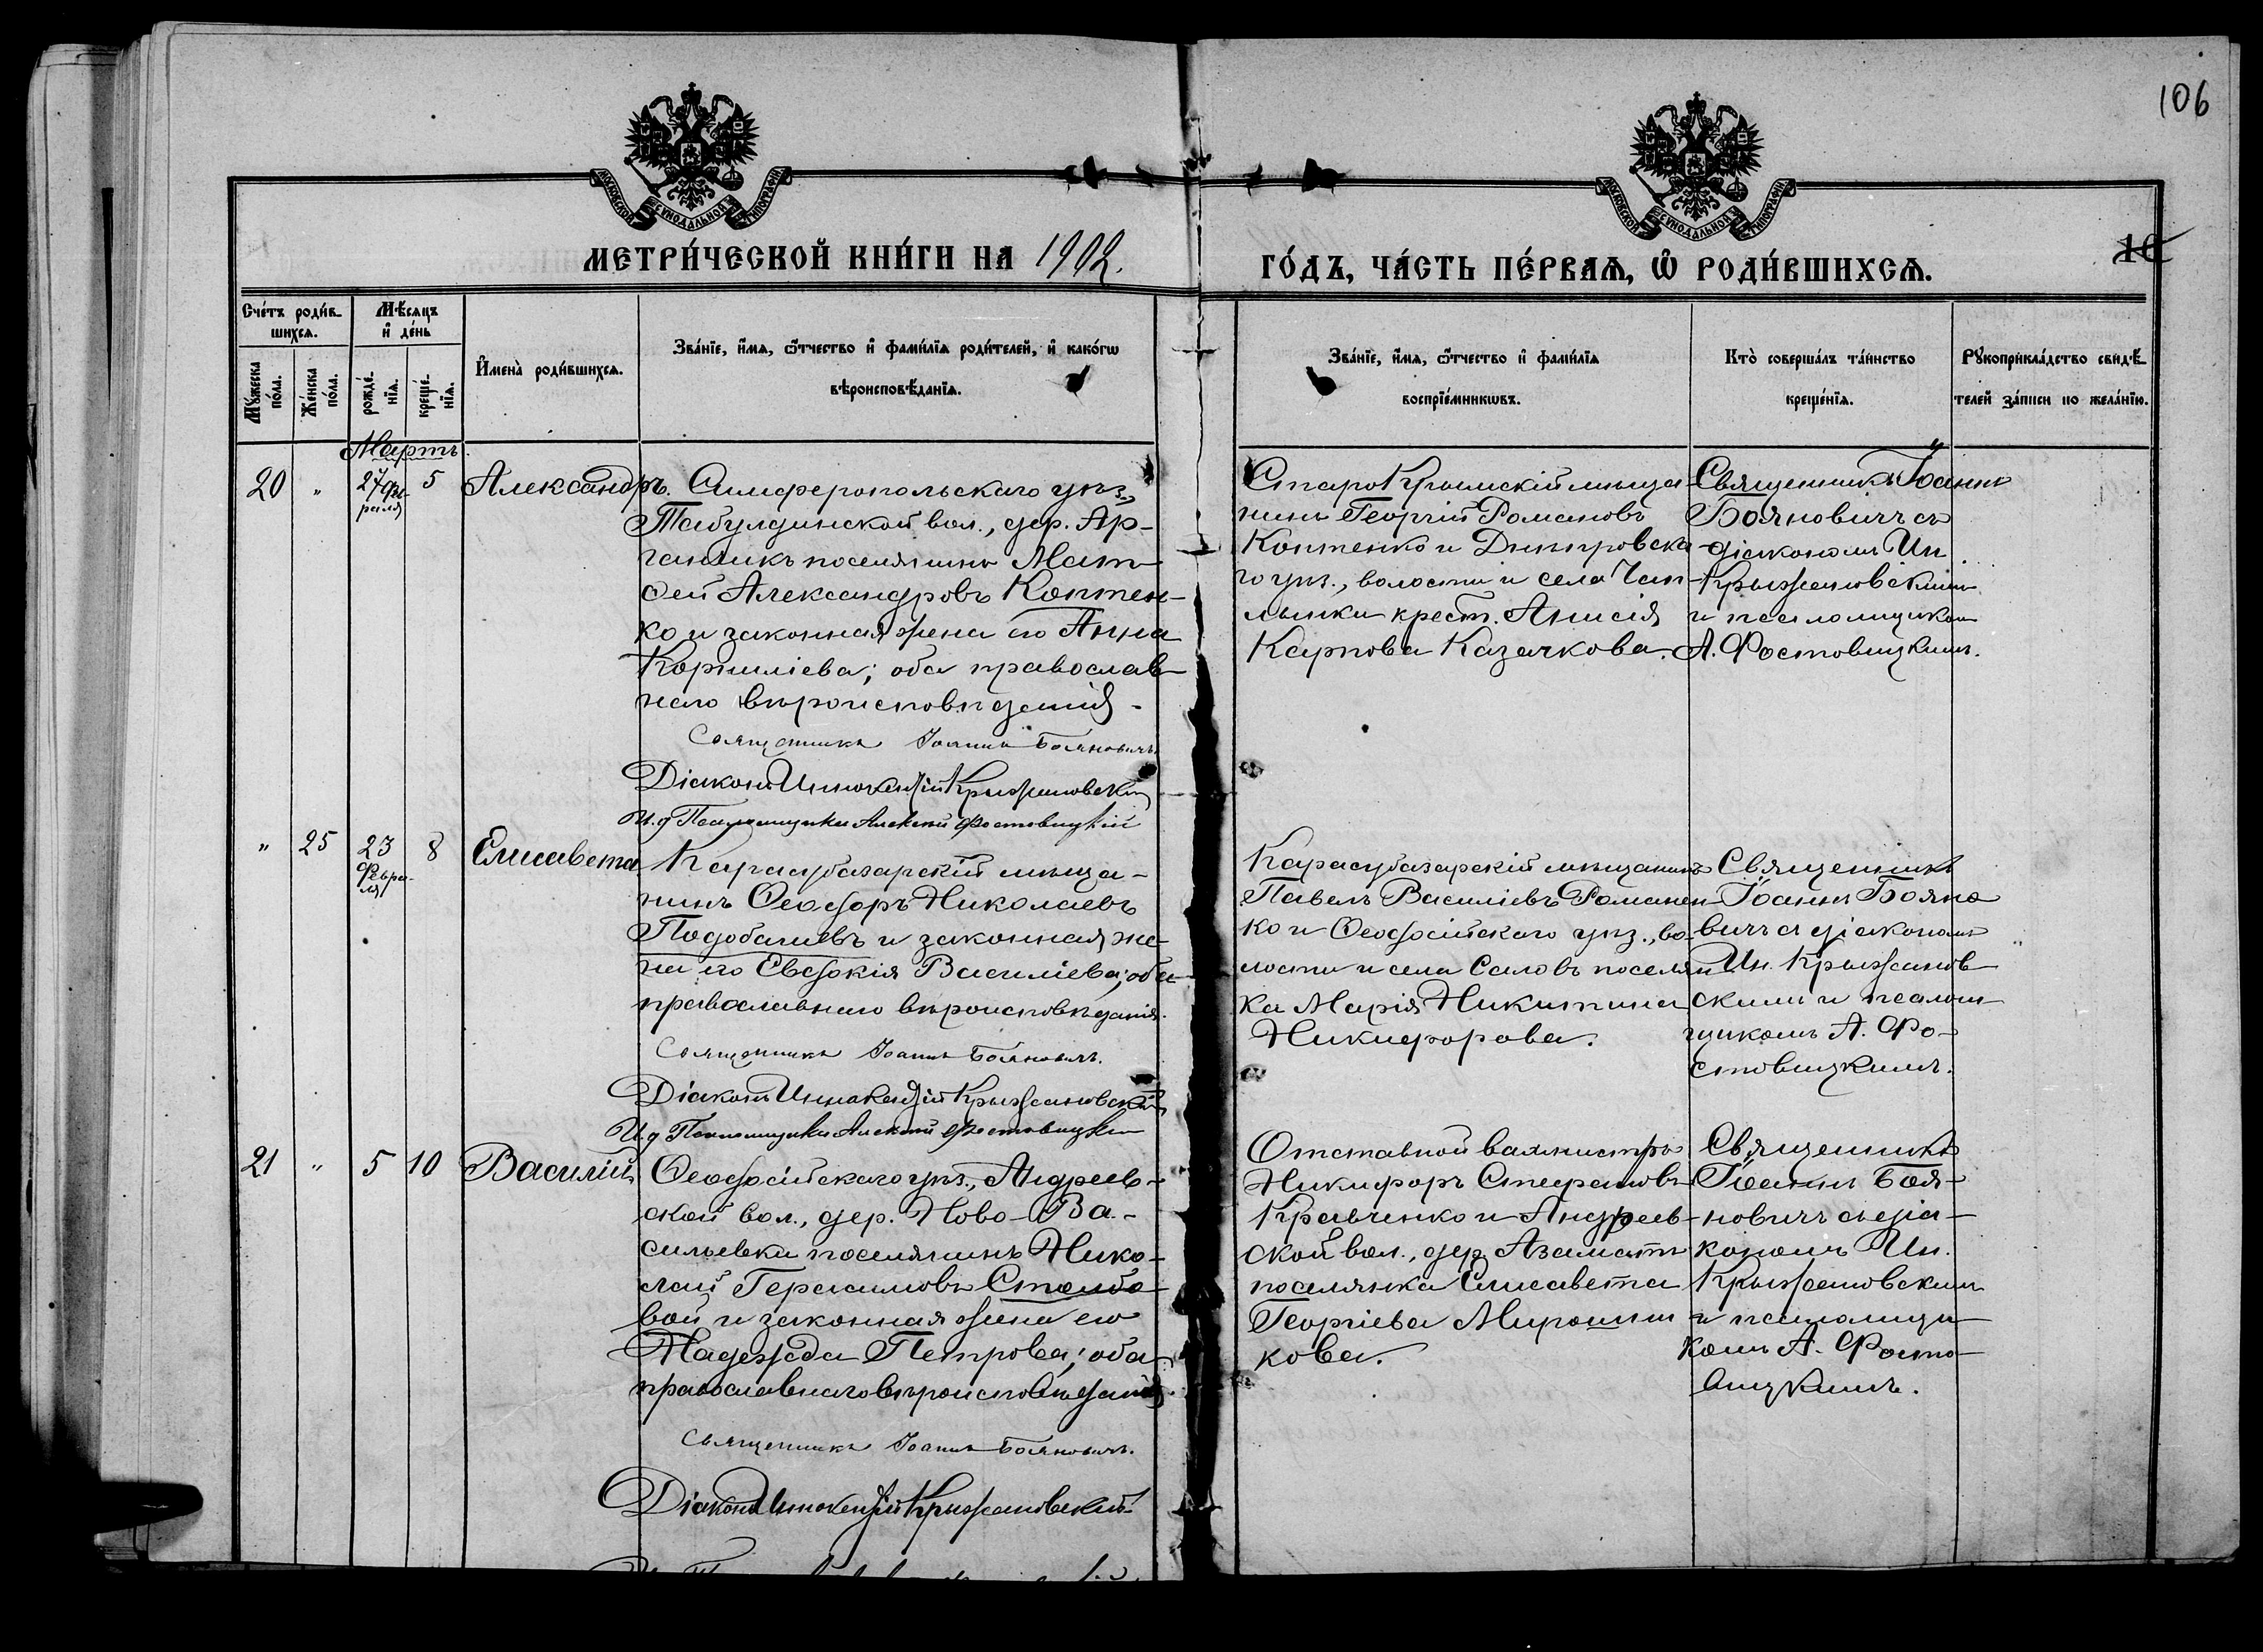 106
МОСКОВСКОЙ СѴНОДАЛЬНОЙ ТИПОГРАФІИ
МОСКОВСКОЙ СѴНОДАЛЬНОЙ ТИПОГРАФІИ
МЕТРИ́ЧЕСКОЙ КНИ́ГИ НА 1902.
ГО́ДЪ, ЧА́СТЬ ПЕ́РВАѦ, Ѽ РОДИ́ВШИХСѦ.
Сче́тъ роди́в-
шихсѧ.
Мꙋжеска по́ла.
Же́нска по́ла.
Мѣ́сѧцъ
и҆ де́нь
рожде́-
нїѧ.
креще́-
нїѧ.
И҆мена̀ роди́вшихсѧ.
Зва́нїе, и҆́мѧ, ѻ҆́тчество и҆ фами́лїѧ роди́телей, и҆ како́гѡ
вѣроисповѣ́данїѧ.
Зва́нїе, и҆́мѧ, ѻ҆́тчество и҆ фами́лїѧ
воспрїе́мникѡвъ.
Кто̀ соверша́лъ та́инство
креще́нїѧ.
Рꙋкоприкла́дство свидѣ́-
телей за́писи по жела́нїю.
Мартъ
20 „ 27 фе-
враля
5 Александръ.
Симферопольскаго уѣз.,
Табулдинской вол., дер. Ар-
гамакъ поселянинъ Мат-
ѳей Александровъ Коптен-
ко и законная жена его Анна
Корниліева; оба православ-
наго вѣроисповѣданія.
Священникъ Іоаннъ Бояновичъ.
Діаконъ Иннокентій Крыжановскій
И. д. Псаломщика Алексѣй Фостовицкій
СтароКрымскій мѣща-
нинъ Георгій Романовъ
Коптенко и Днѣпровска-
го уѣз., волости и села Чап-
лынки крест. Анисія
Карпова Казачкова.
Священникъ Іоаннъ
Бояновичъ съ
діакономъ Ин.
Крыжановскимъ
и псаломщикомъ
А. Фостовицкимъ.
„ 25 23
Февра-
ля
8 Елисавета
Карасубазарскій мѣща-
нинъ Ѳеодоръ Николаевъ
Подобашевъ и законная же-
на его Евдокія Василіева; оба
православнаго вѣроисповѣданія.
Священникъ Іоаннъ Бояновичъ.
Діаконъ Иннокентій Крыжановскій
И. д. Псаломщика Алексѣй Фостовицкій
Карасубазарскій мѣщанинъ
Павелъ Василіевъ Романен-
ко и Ѳеодосійскаго уѣз., во-
лости и села Саловъ поселян-
ка Марія Никитина
Никифорова.
Священникъ
Іоаннъ Бояно-
вичъ съ діакономъ
Ин. Крыжанов-
скимъ и псалом-
щикомъ А. Фо-
стовицкимъ.
21 „ 5 10 Василій
Ѳеодосійскаго уѣз., Андреев-
ской вол., дер. Ново-Ва-
сильевки поселянинъ Нико-
лай Герасимовъ Столбо-
вой и законная жена его
Надежда Петрова; оба
православнаго вѣроисповѣданія.
Священникъ Іоаннъ Бояновичъ.
Діаконъ Иннокентій Крыжановскій
Отставной вахмистръ
Никифоръ Стефановъ
Кравченко и Андреев-
ской вол., дер. Азаматъ
поселянка Елисавета
Георгіева Мирошни-
кова.
Священникъ
Іоаннъ Боя-
новичъ съ діа-
кономъ Ин.
Крыжановскимъ
и псаломщи-
комъ А. Фосто-
вицкимъ.